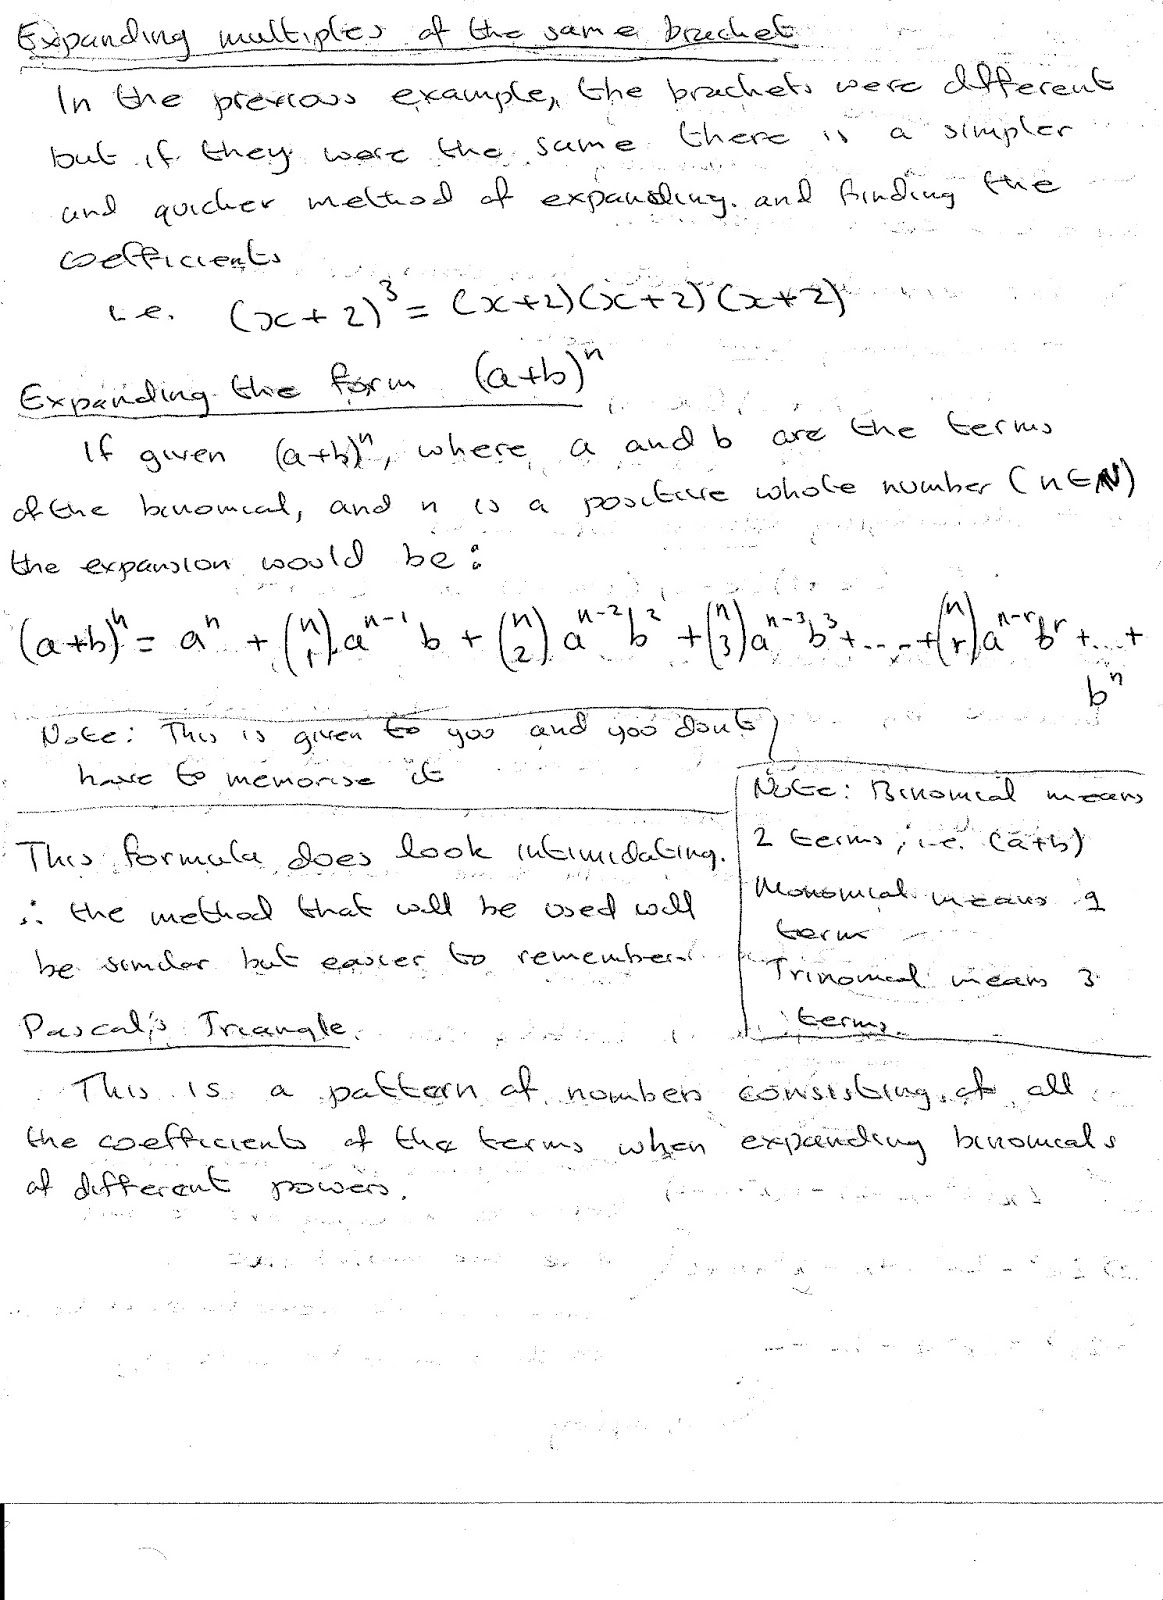 Expanding multiples of the same bracket
In the previous example, the brackets were different
but if they were the same there is a simpler
and quicker method of expanding and finding the
coefficients
i.e. (x+2)³ = (x+2)(x+2)(x+2)
Expanding the form (a+b)ⁿ
If given (a+b)ⁿ, where a and b are the terms
of the binomial, and n is a positive whole number (n∈ℕ)
the expansion would be:
(a+b)ⁿ = aⁿ + (n 1) aⁿ⁻¹ b + (n 2) aⁿ⁻² b² + (n 3) aⁿ⁻³ b³ + .... + (n r) aⁿ⁻ʳ bʳ + ... +
bⁿ
Note: This is given to you and you dont
have to memorise it
Note: Binomial means
2 terms, i.e. (a+b)
Monomial means 1
term
Trinomial means 3
terms.
This formula does look intimidating.
∴ the method that will be used will
be similar but easier to remember.
Pascal's Triangle.
This is a pattern of numbers consisting of all
the coefficients of the terms when expanding binomials
of different powers.